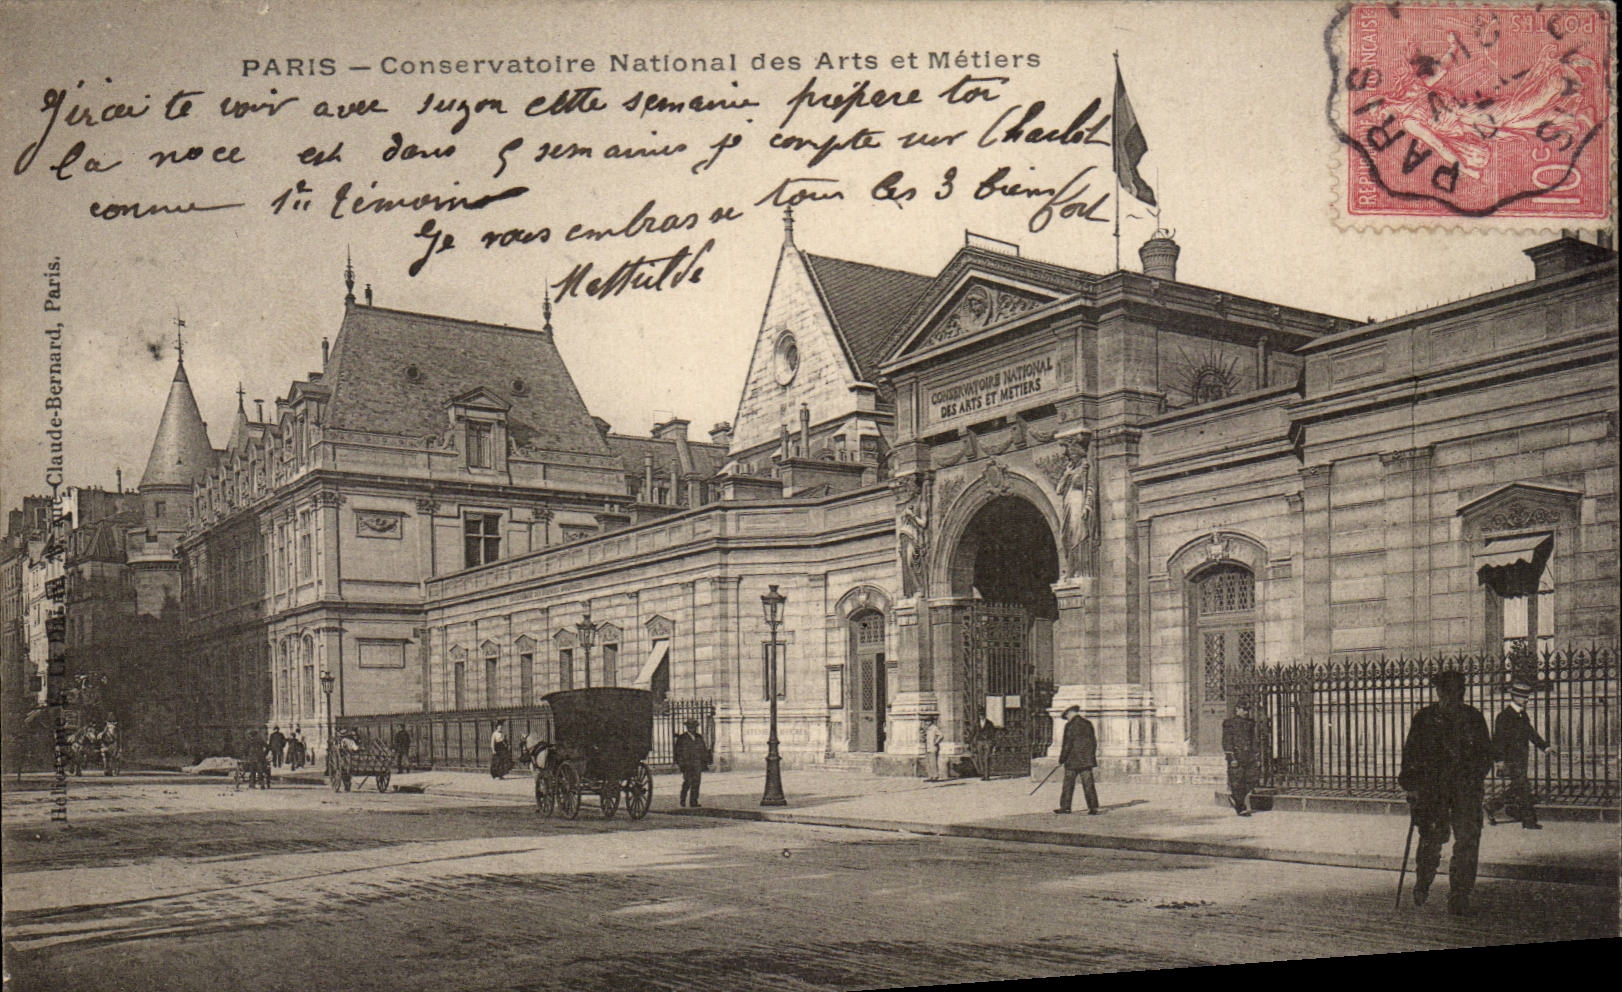 PARIS — Conservatoire National des Arts et Métiers
J'irai te voir avec suzon cette semaine prépare toi
la noce est dans 5 semaines je compte sur Charlot
comme 1er témoin
Je vous embrasse tous les 3 bien fort
Mathilde
CONSERVATOIRE NATIONAL
DES ARTS ET METIERS
Claude-Bernard, Paris.
PARIS
POSTES
10c